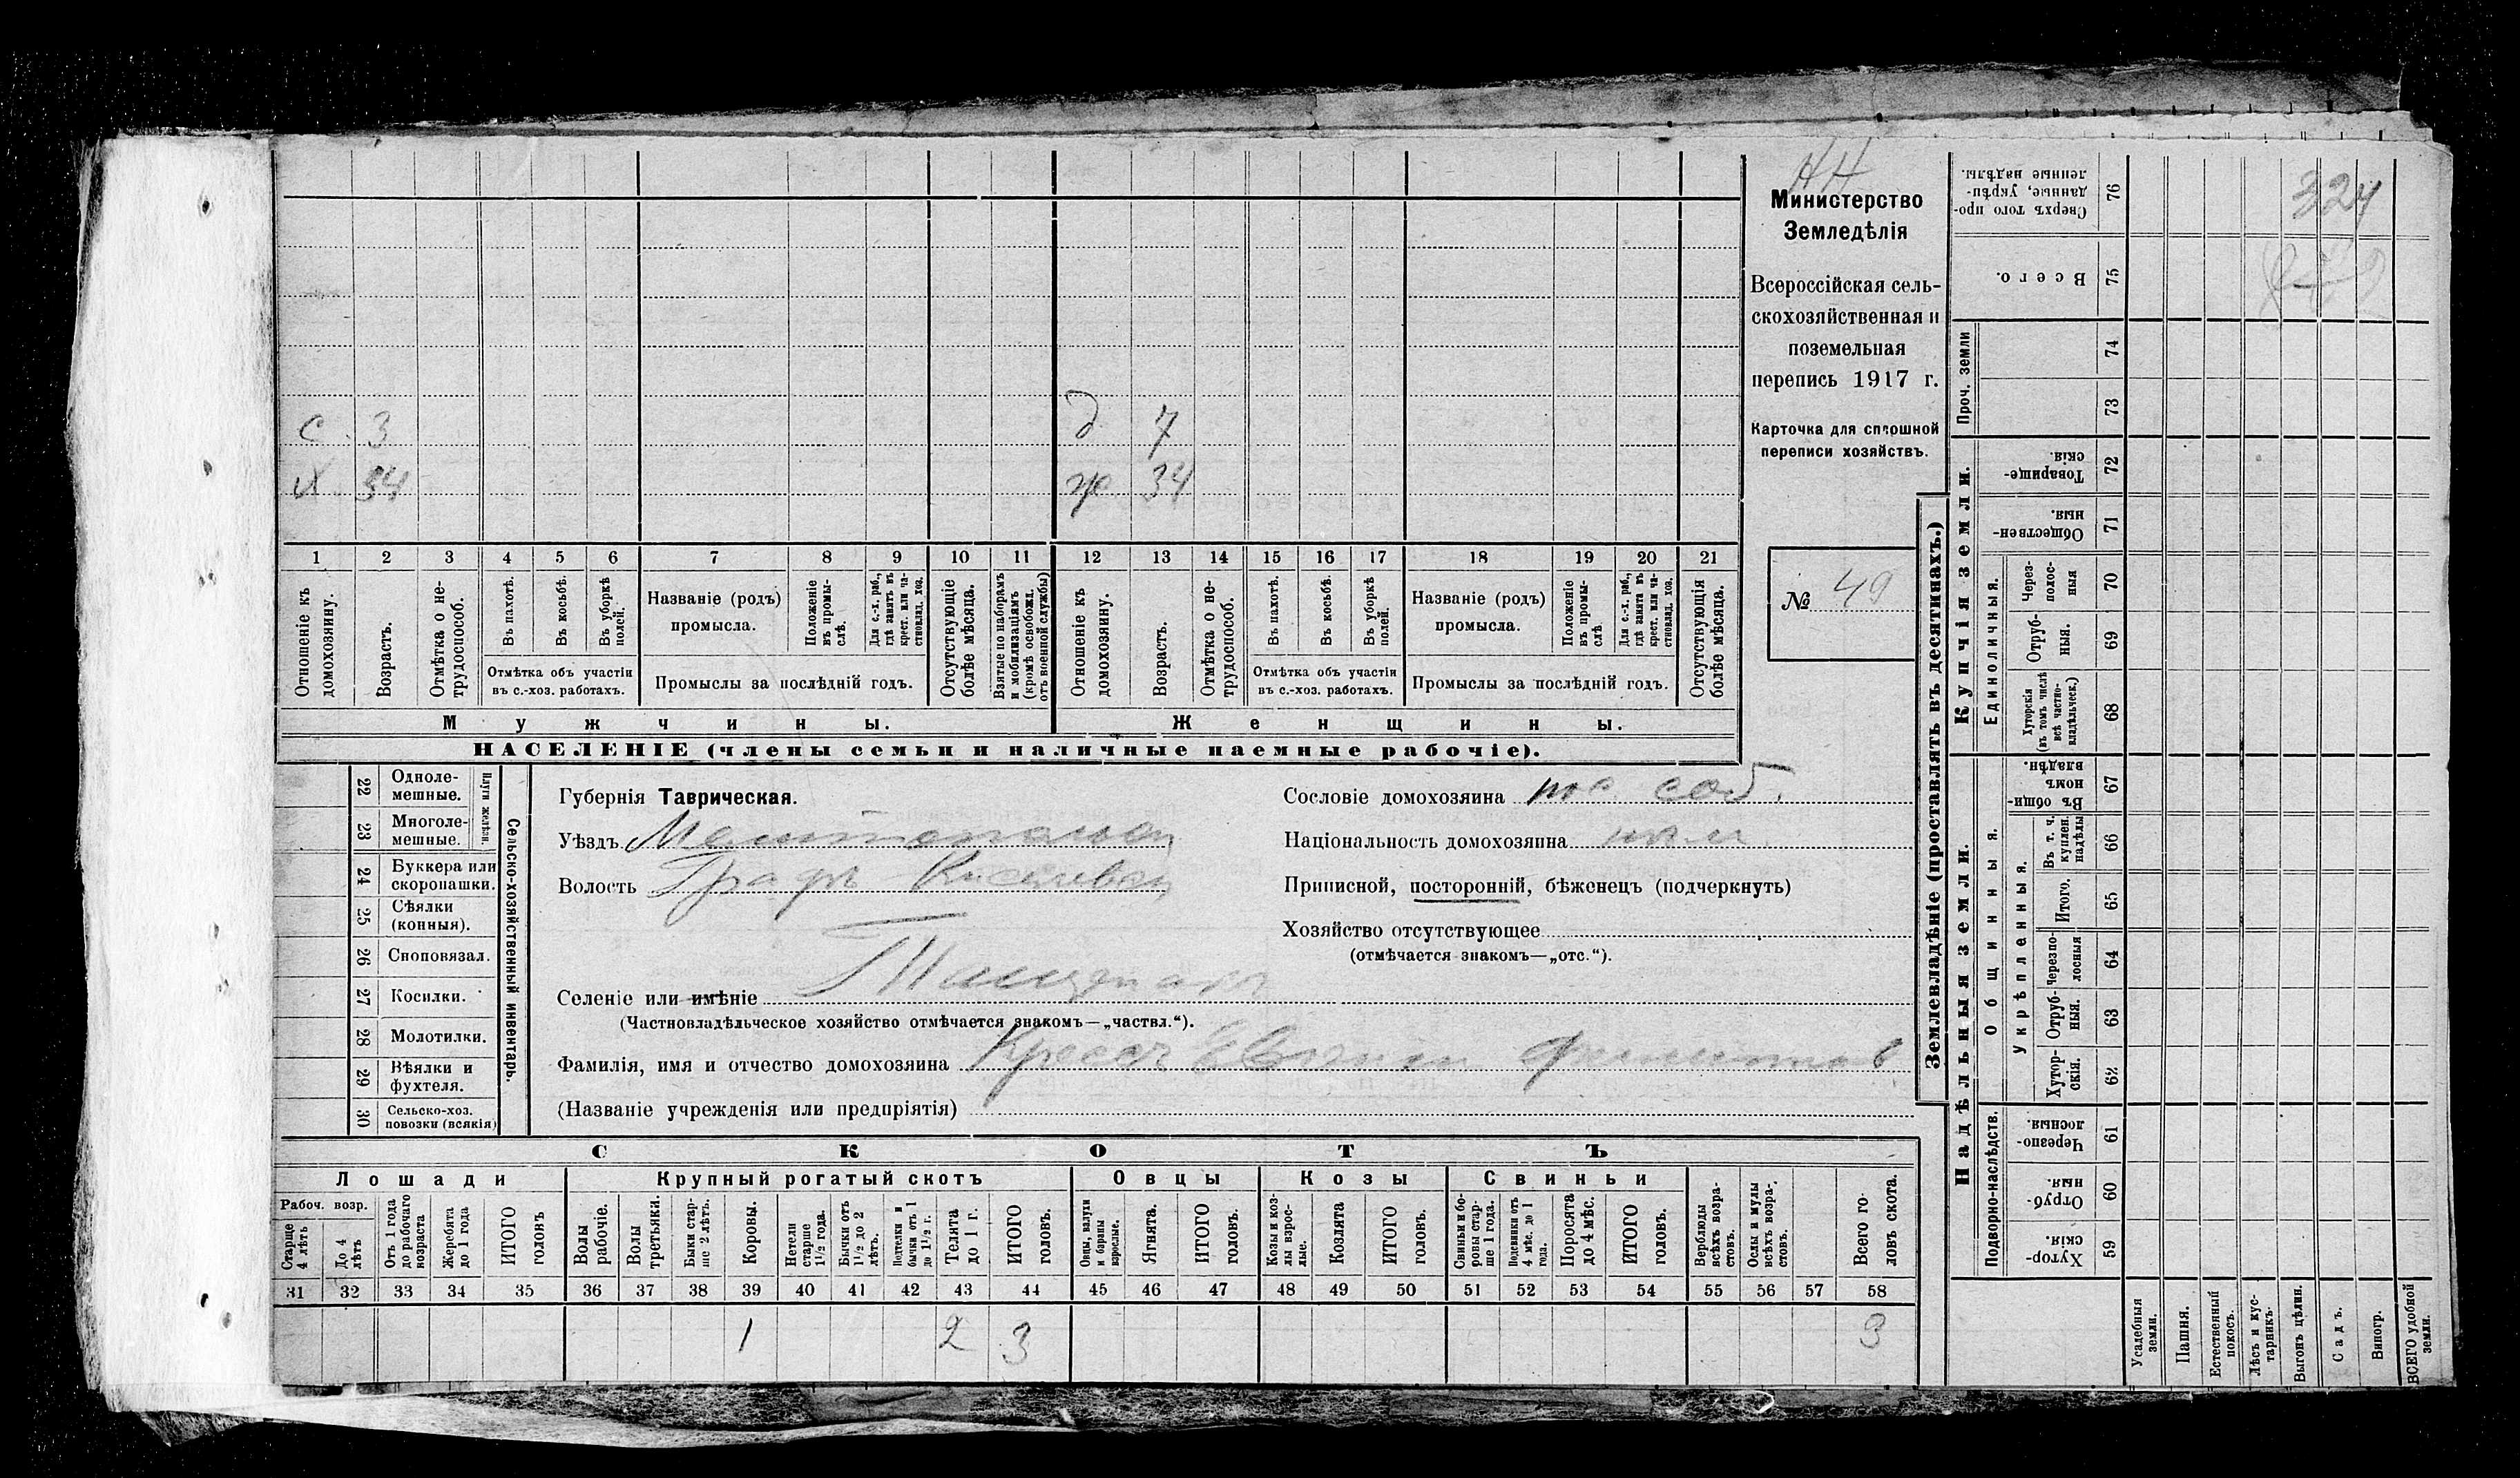 НН
Министерство
Земледѣлія
Всероссійская сель-
скохозяйственная и
поземельная
перепись 1917 г.
Карточка для сплошной
переписи хозяйствъ.
№ 49
324
с 3 д 7
х 34 ж 34
1 2 3 4 5 6 7 8 9 10 11 12 13 14 15 16 17 18 19 20 21
Отношеніе къ домохозяину.
Возрастъ.
Отмѣтка о не-трудоспособ.
Въ пахотѣ.
Въ косьбѣ.
Въ уборкѣ полей.
Отмѣтка объ участіи въ с.-хоз. работахъ.
Названіе (родъ) промысла.
Положеніе въ промы-слѣ.
Для с.-х. раб., гдѣ занятъ въ крест. или ча-стновлад. хоз.
Промыслы за послѣдній годъ.
Отсутствующіе болѣе мѣсяца.
Взятые по наборамъ и мобилизаціямъ (кромѣ освобожд. отъ военной службы)
Отношеніе къ домохозяину.
Возрастъ.
Отмѣтка о не-трудоспособ.
Въ пахотѣ.
Въ косьбѣ.
Въ уборкѣ полей.
Отмѣтка объ участіи въ с.-хоз. работахъ.
Названіе (родъ) промысла.
Положеніе въ промы-слѣ.
Для с.-х. раб., гдѣ занята въ крест. или ча-стновлад. хоз.
Промыслы за послѣдній годъ.
Отсутствующія болѣе мѣсяца.
Мужчины. Женщины.
НАСЕЛЕНІЕ (члены семьи и наличные наемные рабочіе).
22 Одноле-мешные.
23 Многоле-мешные.
Плуги желѣзн.
24 Буккера или скоропашки.
25 Сѣялки (конныя).
26 Сноповязал.
27 Косилки.
28 Молотилки.
29 Вѣялки и фухтеля.
30 Сельско-хоз. повозки (всякія)
Сельско-хозяйственный инвентарь.
Губернія Таврическая.
Уѣздъ Мелитопольск
Волость Графъ
Селеніе или имѣніе
(Частновладѣльческое хозяйство отмѣчается знакомъ—„частвл.“).
Фамилія, имя и отчество домохозяина
(Названіе учрежденія или предпріятія)
Сословіе домохозяина пос. соб.
Національность домохозяина нѣм.
Приписной, посторонній, бѣженецъ (подчеркнуть)
Хозяйство отсутствующее
(отмѣчается знакомъ—„отс.“).
СКОТЪ
Лошади Крупный рогатый скотъ Овцы Козы Свиньи
Рабоч. возр.
Старше 4 лѣтъ
До 4 лѣтъ
Отъ 1 года до рабочаго возраста
Жеребята до 1 года
ИТОГО головъ
Волы рабочіе.
Волы третьяки.
Быки стар-ше 2 лѣтъ.
Коровы.
Нетели старше 1½ года.
Бычки отъ 1½ до 2 лѣтъ.
Подтелки и бычки отъ 1 до 1½ г.
Телята до 1 г.
ИТОГО головъ.
Овцы, валухи и бараны взрослые.
Ягнята.
ИТОГО головъ.
Козы и коз-лы взрос-лые.
Козлята
ИТОГО головъ.
Свиньи и бо-ровы стар-ше 1 года.
Подсвинки отъ 4 мѣс. до 1 года.
Поросята до 4 мѣс.
ИТОГО головъ.
Верблюды всѣхъ возра-стовъ.
Ослы и мулы всѣхъ возра-стовъ.
Всего го-ловъ скота.
31 32 33 34 35 36 37 38 39 40 41 42 43 44 45 46 47 48 49 50 51 52 53 54 55 56 57 58
1 2 3 3
Землевладѣніе (проставлять въ десятинахъ.)
Купчія земли.
Надѣльныя земли.
76 Сверхъ того про-данные, укрѣп-ленные надѣлы.
75 Всего.
Проч. земли
74
73
72 Товарище-скія.
71 Обществен-ныя.
Единоличныя.
70 Через-полос-ныя
69 Отруб-ныя.
68 Хуторскія (въ томъ числѣ всѣ частно-владѣльческ.)
Общинныя.
67 Въ общи-номъ владѣн.
Укрѣпленныя.
66 Въ т. ч. куплен. надѣлы
65 Итого.
64 Черезпо-лосныя
63 Отруб-ныя.
62 Хутор-скія.
Подворно-наслѣдств.
61 Черезпо-лосныя.
60 Отруб-ныя.
59 Хутор-скія.
Усадебныя земли.
Пашня.
Естественный покосъ.
Лѣсъ и кус-тарникъ.
Выгонъ цѣлин.
Садъ.
Виногр.
ВСЕГО удобной земли.